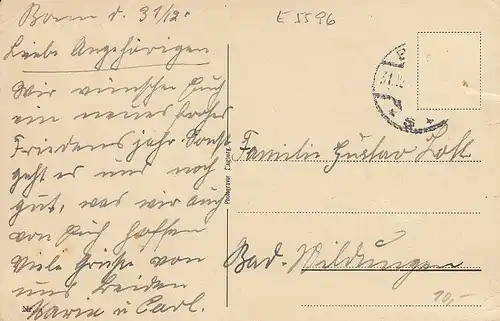 Bonn d. 31/12.
Liebe Angehörigen
Wir wünschen Euch
ein neues frohes
Friedensjahr. Sonst
geht es uns noch
gut, was wir auch
von Euch hoffen
Viele Grüße von
uns beiden
Maria u Carl.
Nr.
E 5596
31.12.
Familie Gustav
Bad-Wildungen
10,-